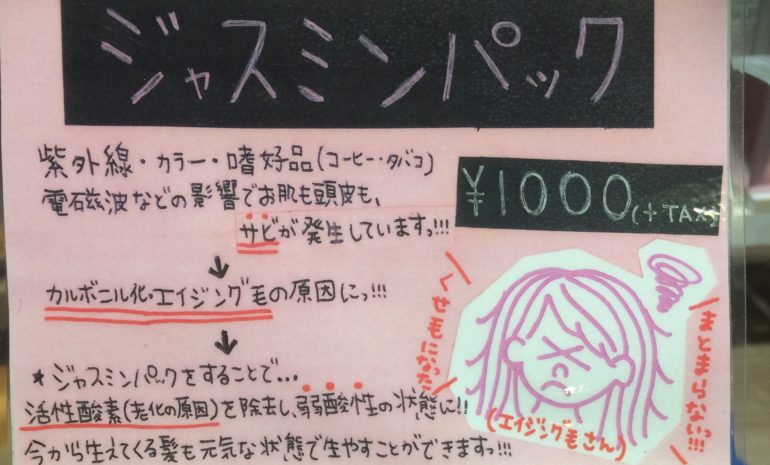 ジャスミンパック
紫外線・カラー・嗜好品(コーヒー・タバコ)
電磁波などの影響でお肌も頭皮も、
¥1000(+TAX)
サビが発生していますっ!!!
↓
カルボニル化・エイジング毛の原因にっ!!!
↓
*ジャスミンパックをすることで...
活性酸素(老化の原因)を除去し、弱酸性の状態に!!
今から生えてくる髪も元気な状態で生やすことができますっ!!!
くせもになった
まとまらないっ!!!
(エイジング毛さん)